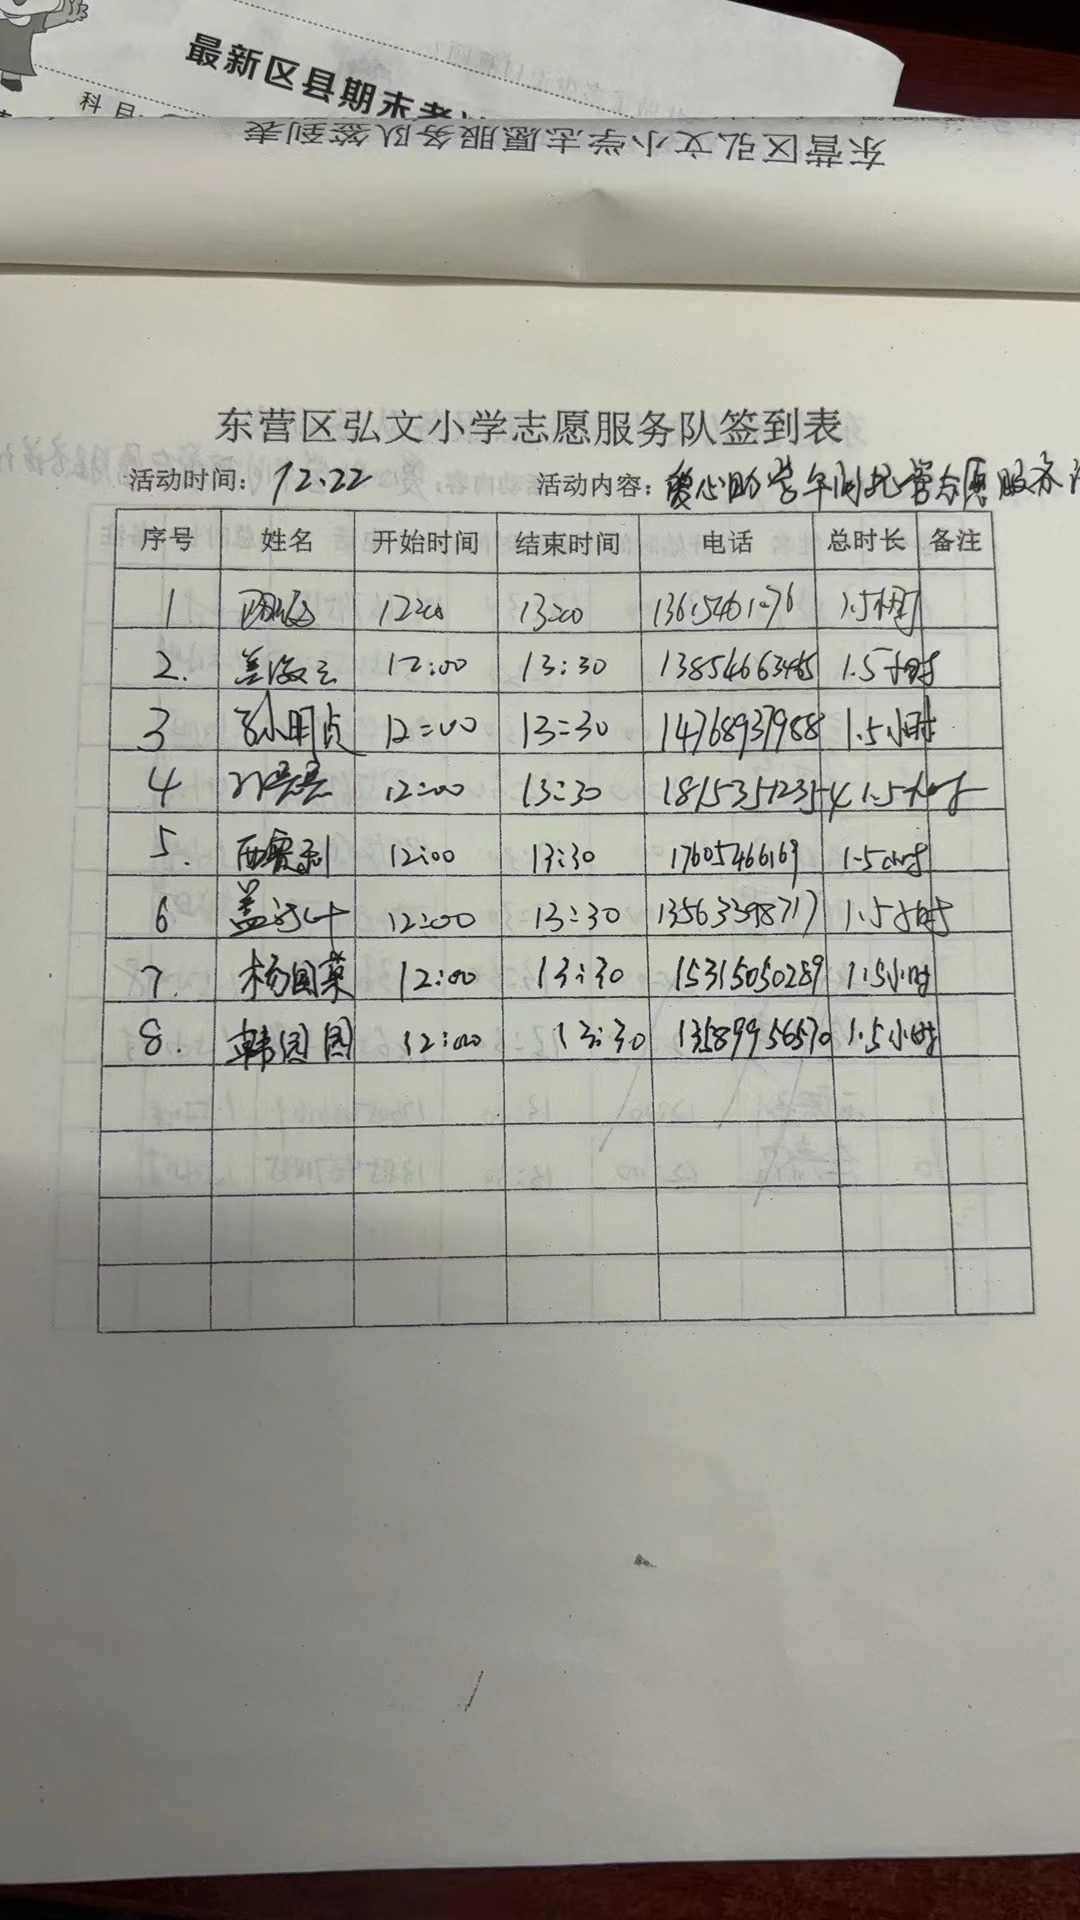 最新区县期末考
科目
东营区弘文小学志愿服务队签到表
东营区弘文小学志愿服务队签到表
活动时间: 12.22 活动内容: 爱心助学午间托管志愿服务活
序号 姓名 开始时间 结束时间 电话 总时长 备注
1 12:00 13:00 1.5小时
2. 12:00 13:30 1.5小时
3 孙明贞 12:00 13:30 14768937988 1.5小时
4 12:00 13:30 18153512354 1.5小时
5. 西爱利 12:00 13:30 17605466169 1.5小时
6 盖 12:00 13:30 13563398717 1.5小时
7. 杨国菊 12:00 13:30 15315050289 1.5小时
8. 韩园园 12:00 13:30 13589956570 1.5小时